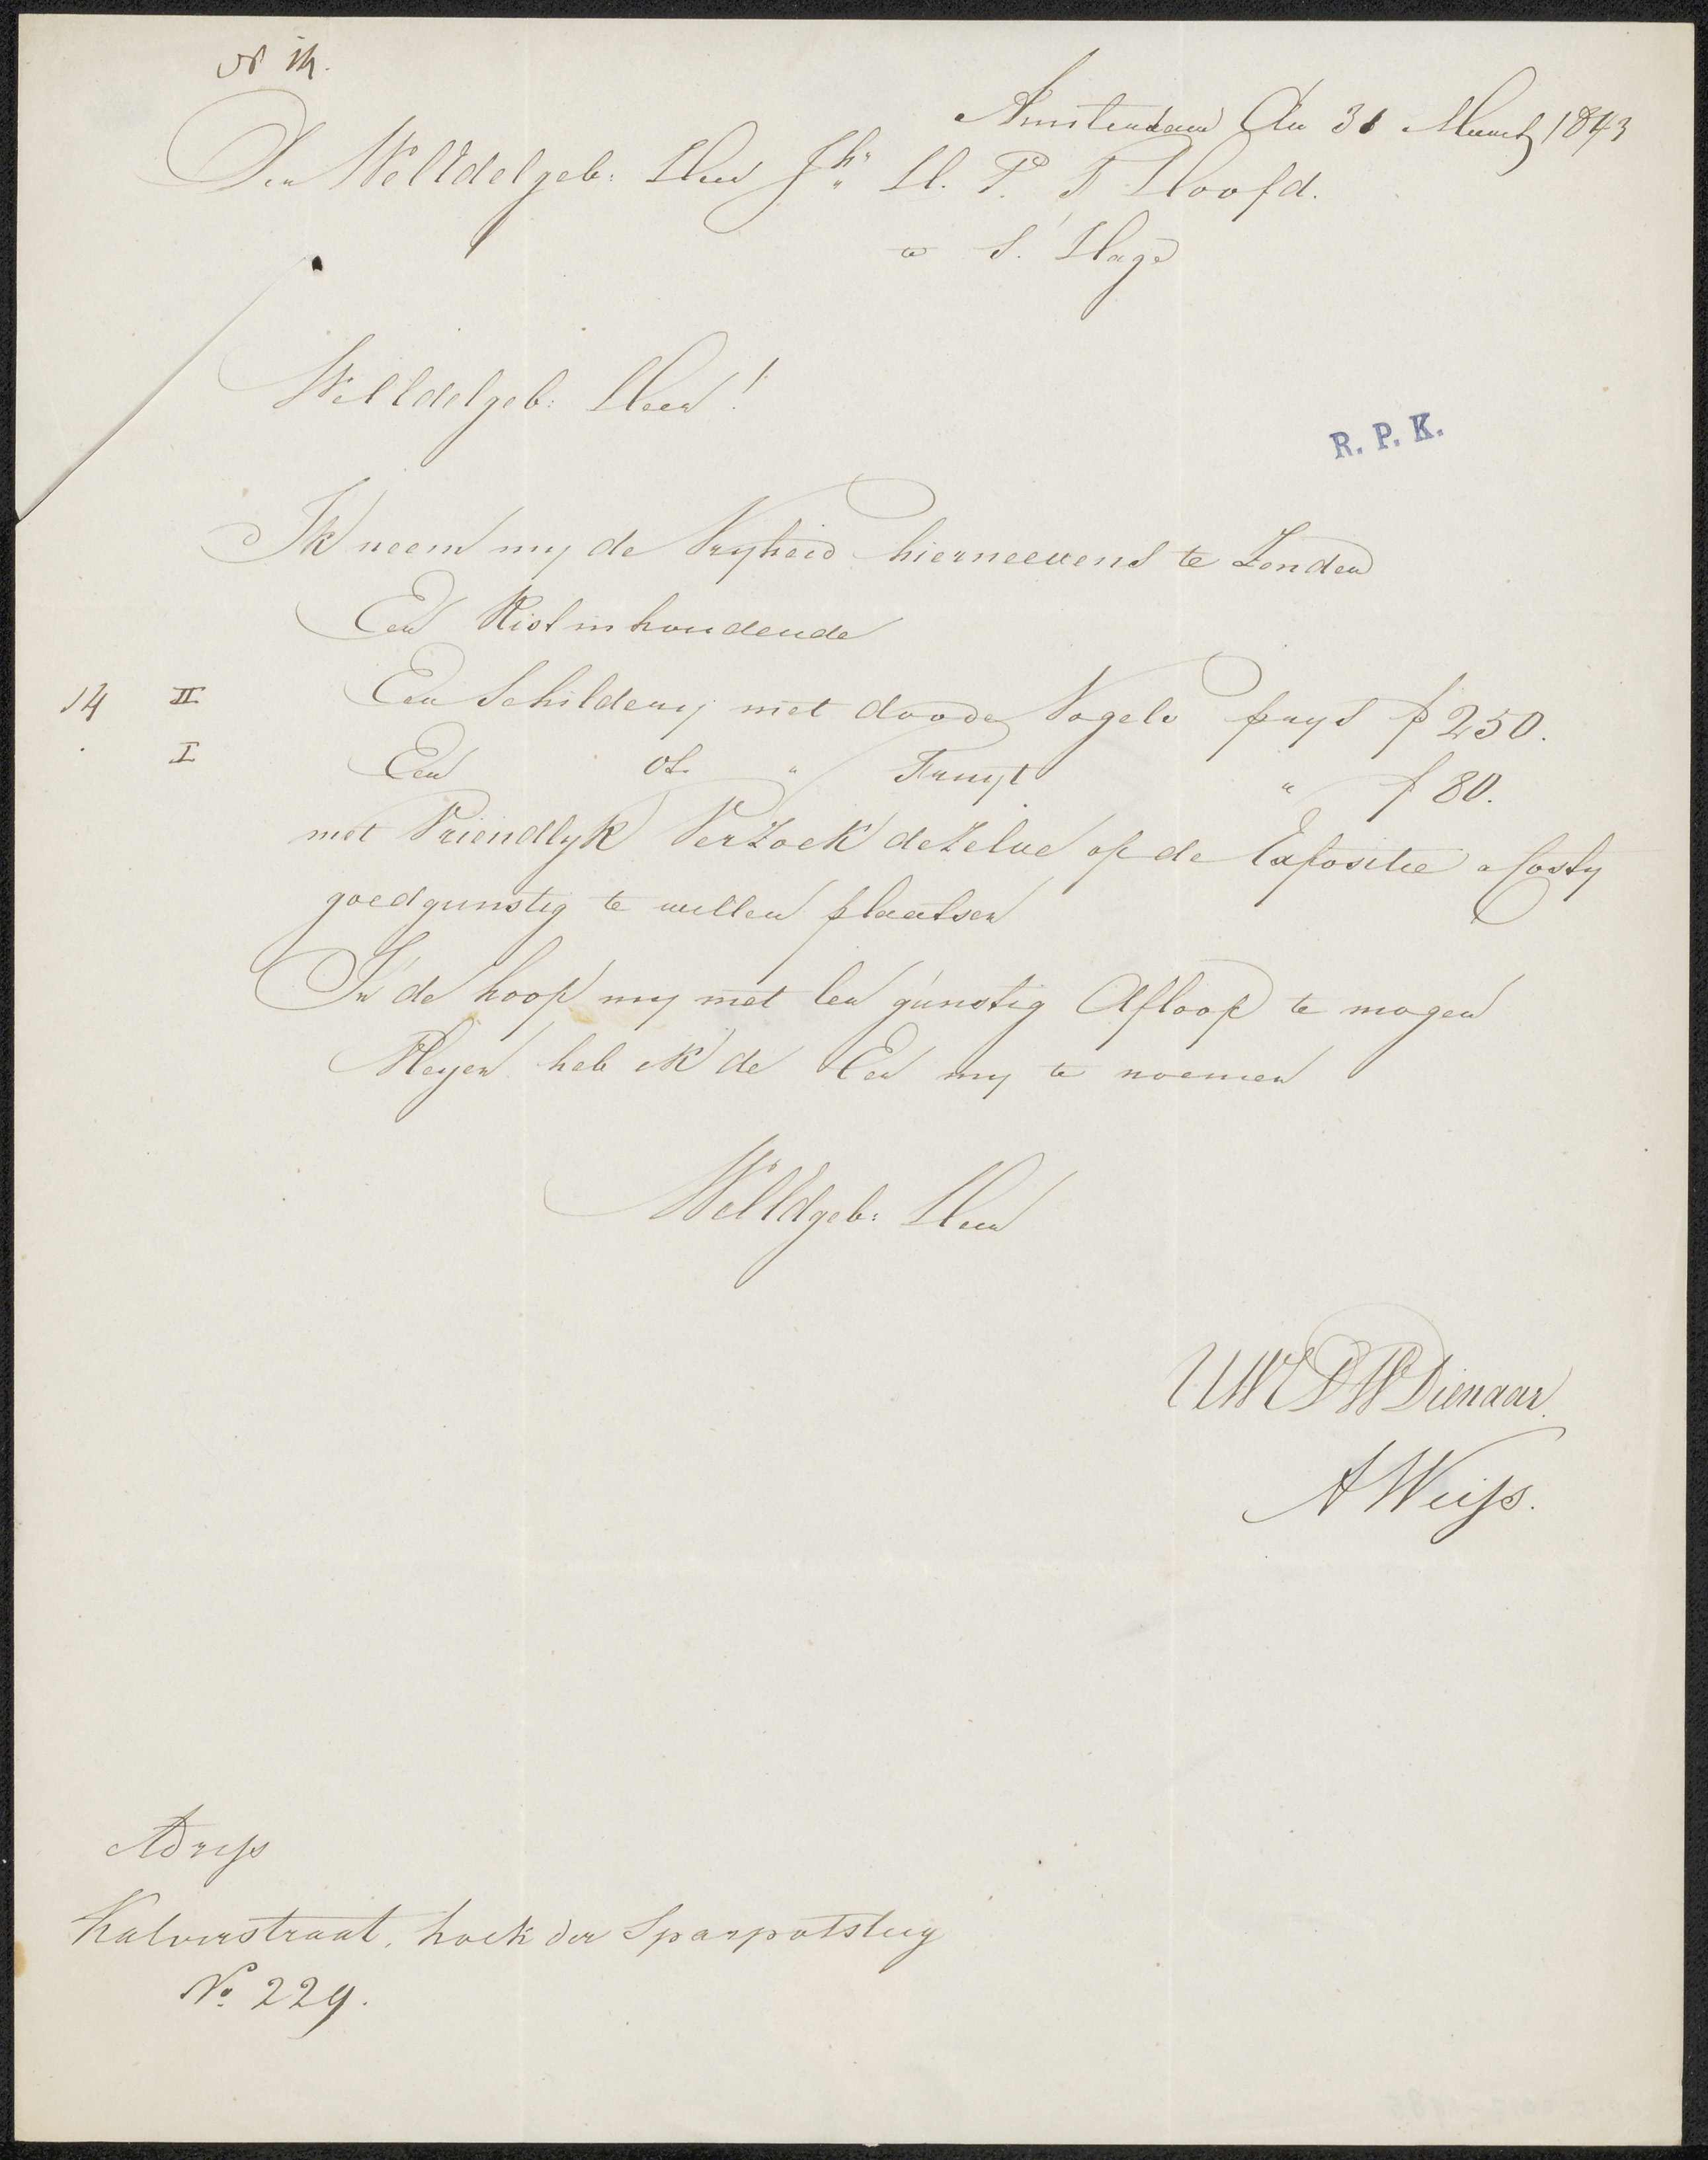 No 14.
Amsterdam den 31 Maart 1843
Den WelEdelgeb: Heer Jhr H. P. T Hoofd.
te S'. Hage
WelEdelgeb: Heer!
R. P. K.
Ik neem my de Vryheid hierneevens te Zenden
Een Kist inhoudende
14 II Een Schildery met doode Vogels prys f 250.
I Een do. " Fruyt " f 80.
met Vriendlyk Verzoek dezelve op de Expositie a Costy
goedgunstig te willen plaatsen
In de hoop my met een gunstig Afloop te mogen
Vleyen heb ik de Eer my te noemen
WelEdgeb: Heer
UWEDWDienaar.
A Weiss.
Adress
Kalverstraat, hoek der Sparpotsteeg
No. 229.